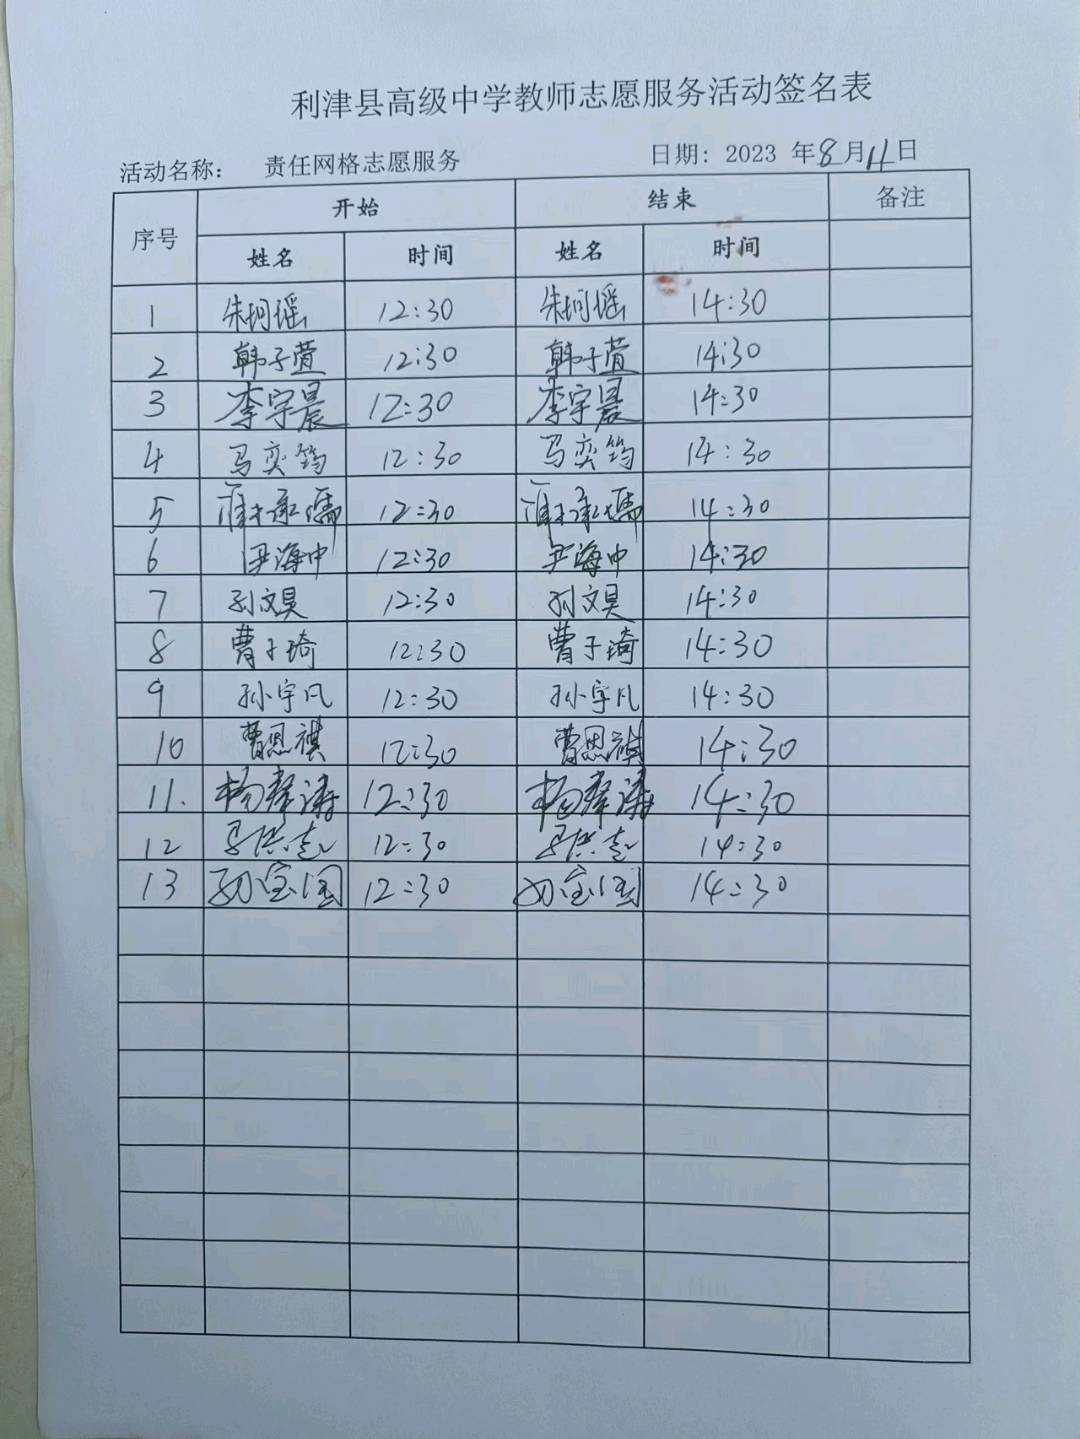 利津县高级中学教师志愿服务活动签名表
活动名称： 责任网格志愿服务 日期：2023 年8月11日
序号 开始 结束 备注
姓名 时间 姓名 时间
1 朱珂瑶 12:30 朱珂瑶 14:30
2 韩子萱 12:30 韩子萱 14:30
3 李宇晨 12:30 李宇晨 14:30
4 马奕筠 12:30 马奕筠 14:30
5 12:30 14:30
6 尹海中 12:30 尹海中 14:30
7 孙文昊 12:30 孙文昊 14:30
8 曹子琦 12:30 曹子琦 14:30
9 孙宇凡 12:30 孙宇凡 14:30
10 曹恩祺 12:30 曹恩祺 14:30
11. 杨孝涛 12:30 杨孝涛 14:30
12 12:30 14:30
13 宝国 12:30 宝国 14:30